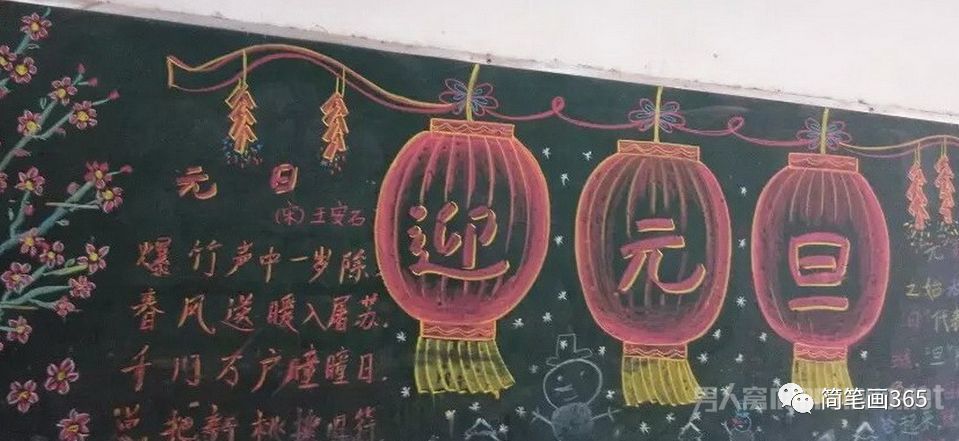 元日
(宋)王安石
爆竹声中一岁除
春风送暖入屠苏
千门万户瞳瞳日
总把新桃换旧符
迎元旦
元
始
日 代
旦
男人窝
简笔画365